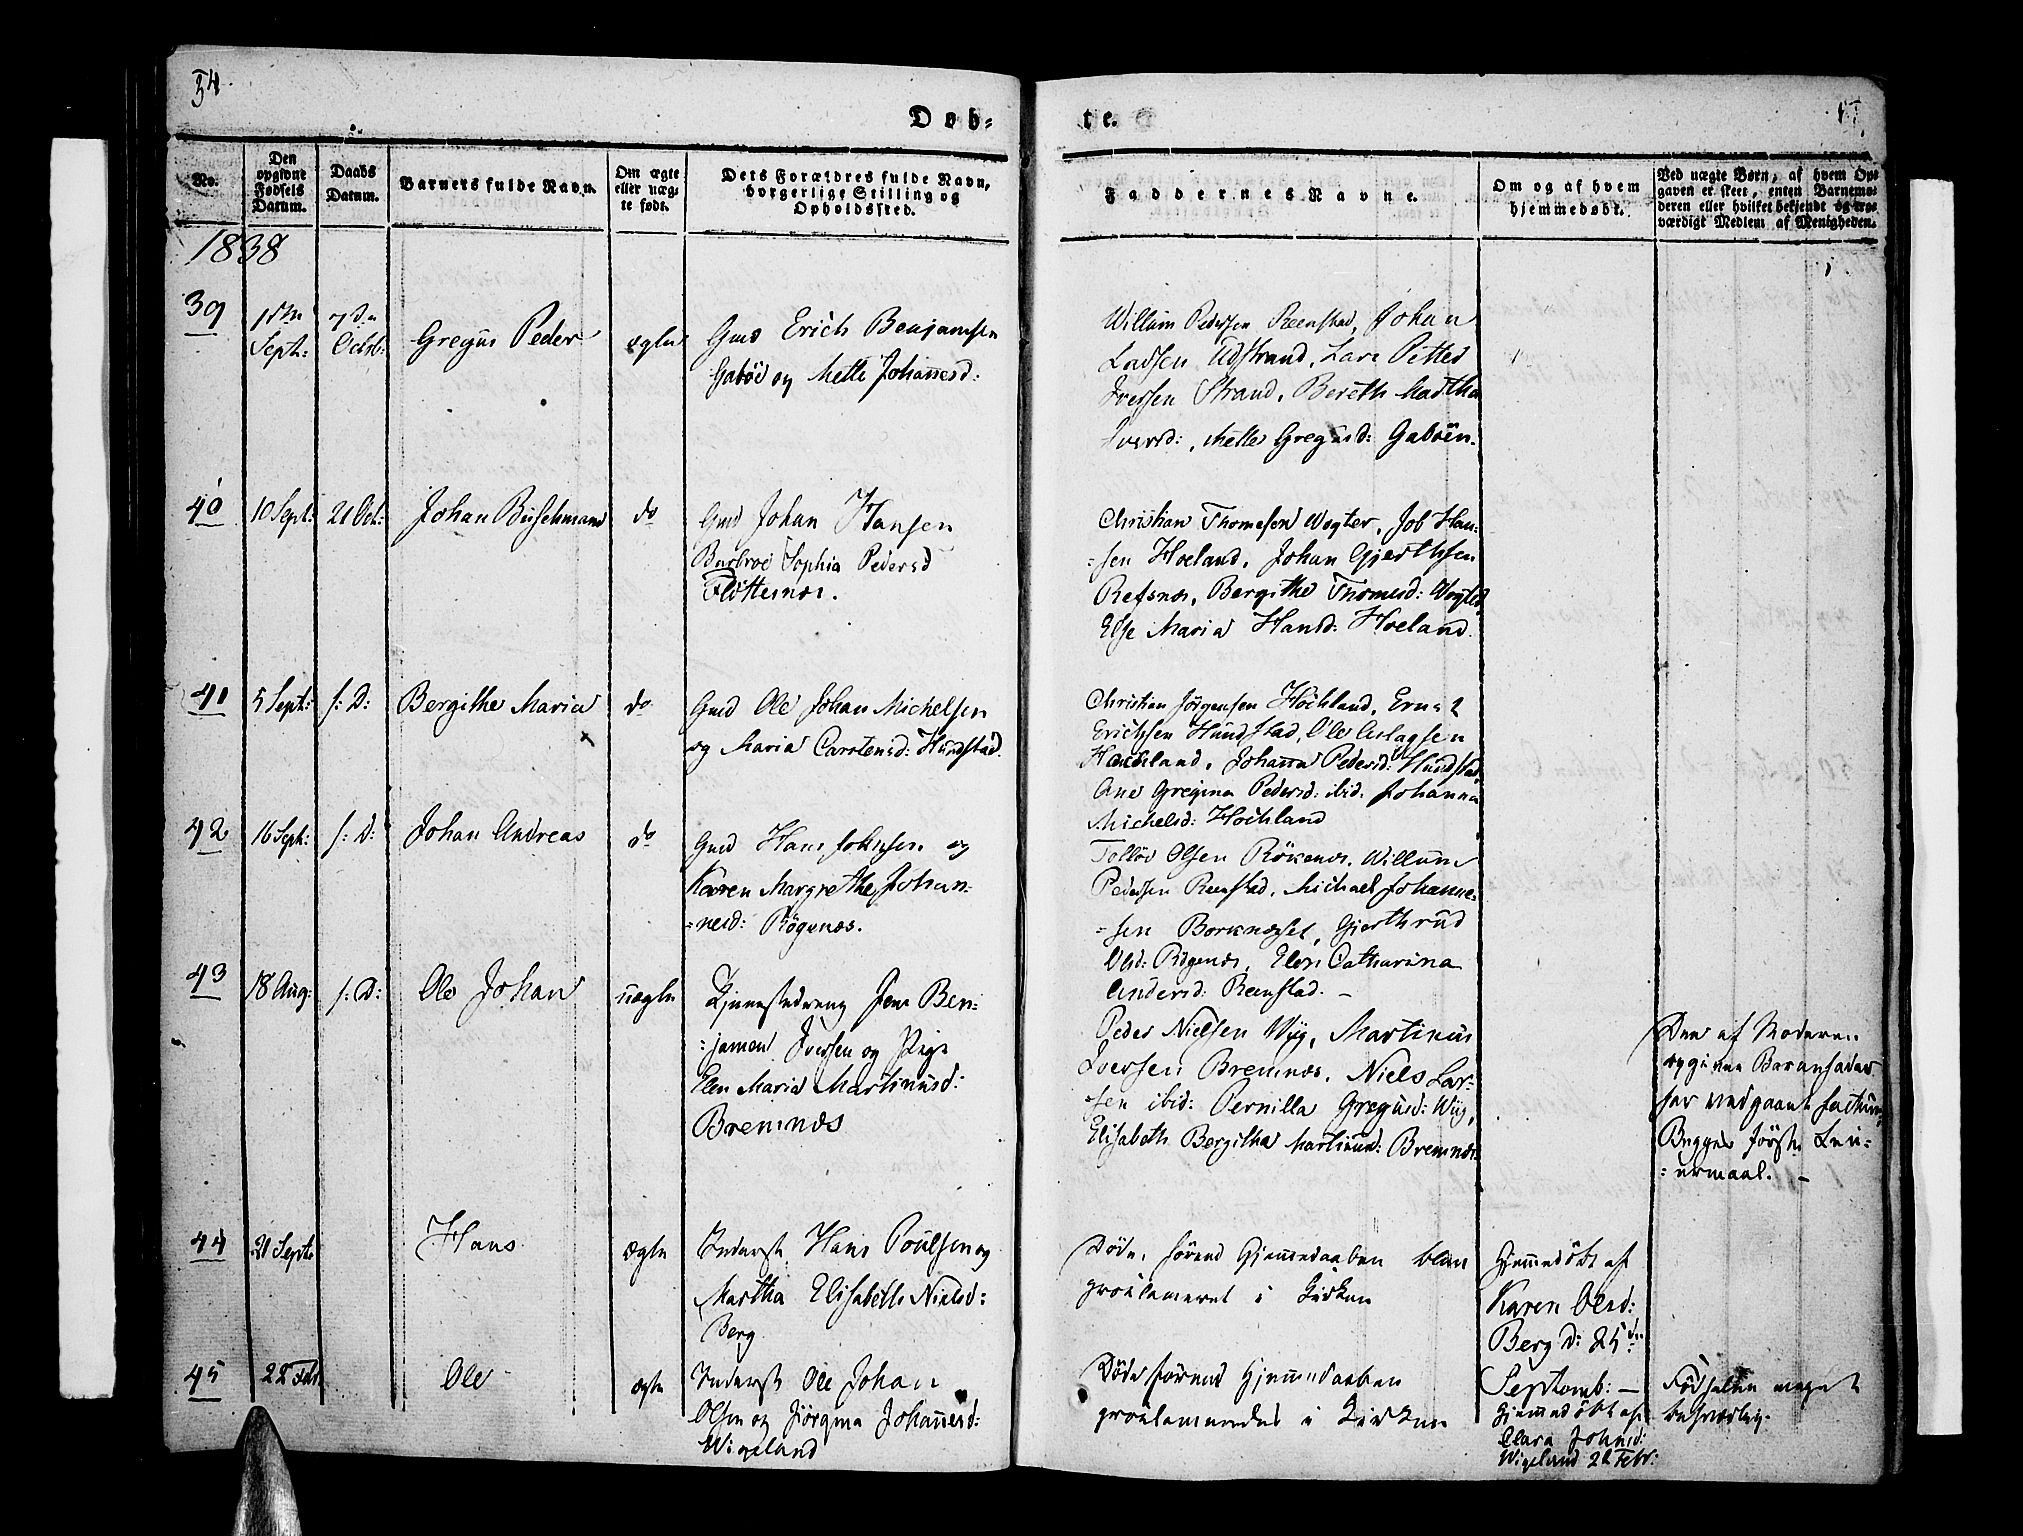 54.
Døb-
te.
No.
Den opgivne Fødsels Datum.
Daabs Datum.
Barnets fulde Navn.
Om ægte eller uægte født.
Dets Forældres fulde Navn, borgerlige Stilling og Opholdssted.
Faddernes Navne.
Om og af hvem hjemmedøbt.
Ved uægte Børn, af hvem Opgaven er skeet, enten Barnemoderen eller hvilket bekjendt og troværdigt Medlem af Menigheden.
1838
39
1ste
Sept:
7de
Octb:
Gregus Peder
ægte
Gmd Erich Benjamsen
Gaböe og Mette Johannesd:
Willum Pedersen Reenstad, Johan
Larssen Udstrand, Lars Petter
Iversen Strand, Bereth Martha
Iversd:, Mette Gregusd: Gaböen.
40
10 Sept:
21 Oct:
Johan Buschmand
do
Gmd Johan Hansen
Barbroe Sophia Pedersd
Flöttenæs.
Christian Thomesen Wogter, Job Han-
-sen Hoeland, Johan Gjerthsen
Refsnæs, Bergithe Thomesd: Wogter
Else Maria Hansd: Hoeland.
41
5 Sept:
s: D:
Bergithe Maria
do
Gmd Ole Johan Michelsen
og Maria Carstensd: Hundstad.
Christian Jörgensen Hochland, Ernst
Erichsen Hundstad, Ole Aslagsen
Hauchland, Johanna Pedersd: Hundstad
Ane Gregina Pedersd: ibid: Johanna
Michelsd: Hochland
42
16 Sept:
s: D:
Johan Andreas
do
Gmd Hans Johnsen og
Karen Margrethe Johan-
-nesd: Rögenæs.
Tolløv Olsen Rökenæs, Willum
Pedersen Reenstad, Michael Johanne-
-sen Borknæset, Gjerthrud
Olsd: Rögenæs, Elen Catharina
Andersd: Reenstad. —
43
18 Aug:
s: D:
Ole Johan
uægte
Tjenestedreng Jens Ben-
-jamen Iversen og Pige
Elen Maria Martinusd:
Bremnæs
Peder Nielsen Wiig, Martinus
Iversen Bremnæs, Niels Lar-
-sen ibid: Pernilla Gregusd: Wiig,
Elisabeth Bergitha Martinusd: Bremnæs
Den af Moderen
opgivne Barnefader
har vedgaaet factum,
Begges første Lei-
-ermaal. —
44
21 Septr
Hans
ægte
Inderst Hans Poulsen og
Martha Elisabeth Nielsd:
Berg
Döde, förend Hjemmedaaben blev
proclameret i Kirken
Hjemmedöbt af
Karen Olsd:
Berg D: 25de
Septemb: —
45
22 Feb
Ole
ægte
Inderst Ole Johan
Olsen og Jörgina Johannesd:
Wigeland
Döde förend Hjemmedaaben
proclameredes i Kirken
Hjemmedöbt af
Clara Johnsd:
Wigeland 22 Febr:
Födselen meget
besværlig.